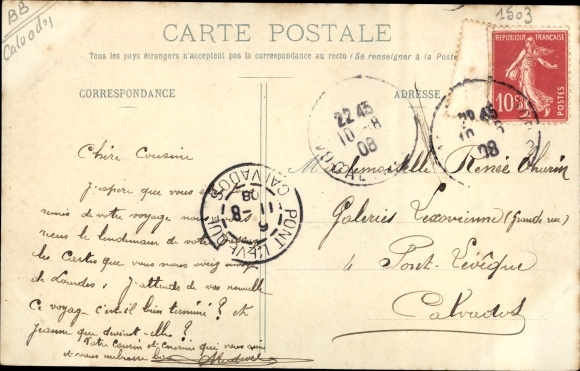 BB
Calvados
1503
CARTE POSTALE
Tous les pays étrangers n'acceptent pas la correspondance au recto (Se renseigner à la Poste
CORRESPONDANCE
ADRESSE
REPUBLIQUE FRANÇAISE
10c
POSTES
22 45
10 -8
08
22 45
10
08
PONT L'EVEQUE
CALVADOS
11 -8
08
Chère Cousine
J'espère que vous
remis de votre voyage nous
reçu le lendemain de votre
les cartes que vous nous avez
de Lourdes; J'attends de vos nouvelles
Ce voyage c'est-il bien terminé? et
Jeanne que devient-elle?
Votre cousin et cousine qui vous aime
et vous embrasse bien
Mademoiselle Renée
Galeries Lexoviennes (Grande rue)
à Pont-Lévêque
Calvados